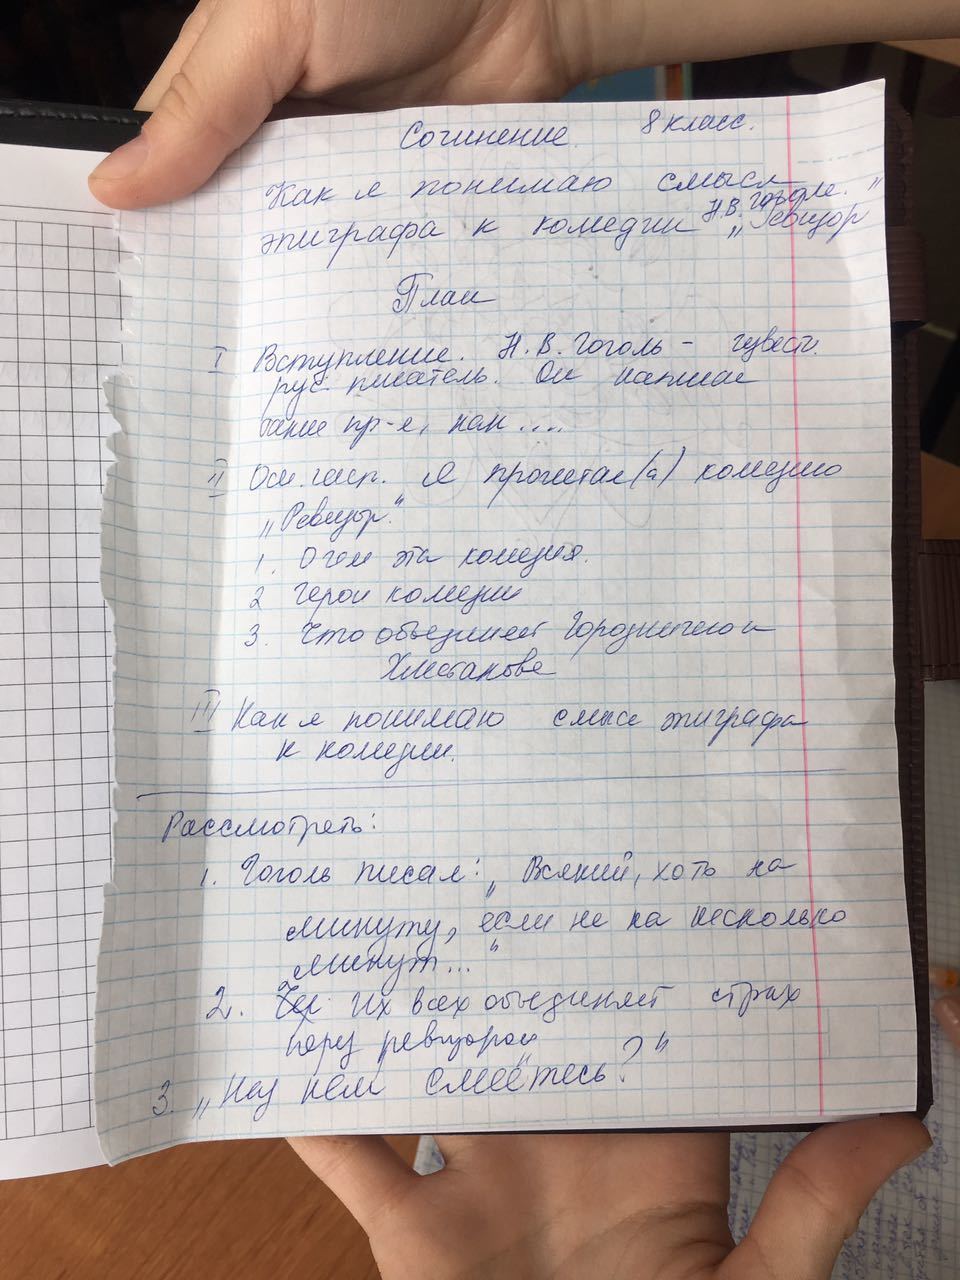 Сочинение. 8 класс.
Как я понимаю смысл
эпиграфа к комедии Н.В. Гоголя. „Ревизор"
План
I Вступление. Н. В. Гоголь –
рус. писатель. Он написал
такие пр-я, как ....
II Осн. часть. Я прочитал(а) комедию
„Ревизор."
1. О чем эта комедия.
2 Герои комедии
3. Что объединяет Городничего и
Хлестакова
III Как я понимаю смысл эпиграфа
к комедии.
Рассмотреть:
1. Гоголь писал: „Всякий, хоть на
минуту, если не на несколько
минут..."
2. их всех объединяет страх
перед ревизором
3. „Над кем смеётесь?"